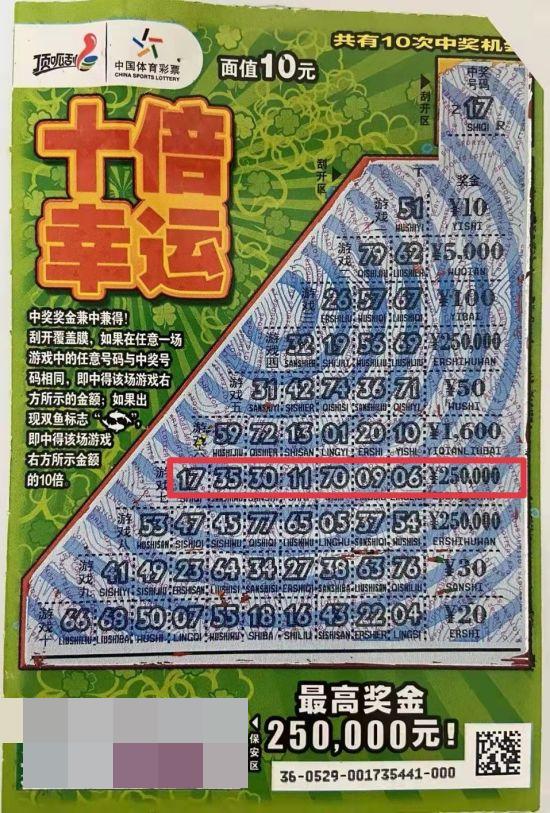 顶呱刮
中国体育彩票
CHINA SPORTS LOTTERY
面值10元
共有10次中奖机会
十倍
幸运
中奖奖金兼中兼得!
刮开覆盖膜,如果在任意一场
游戏中的任意号码与中奖号
码相同,即中得该场游戏右
方所示的金额;如果出
现双鱼标志“ ”,
即中得该场游戏
右方所示金额
的10倍。
刮开区
刮开区
中奖号码
17
SHIQI
奖金
游戏一 51 ¥10
WUSHIYI YISHI
游戏二 79 62 ¥5,000
QISHIJIU LIUSHIER WUQIAN
游戏三 26 57 67 ¥100
ERSHILIU WUSHIQI LIUSHIQI YIBAI
游戏四 32 19 56 69 ¥250,000
SANSHIER SHIJIU WUSHILIU LIUSHIJIU ERSHIWUWAN
游戏五 31 42 74 36 71 ¥50
SANSHIYI SISHIER QISHISI SANSHILIU QISHIYI WUSHI
游戏六 59 72 13 01 20 10 ¥1,600
WUSHIJIU QISHIER SHISAN LINGYI ERSHI YISHI YIQIANLIUBAI
游戏七 17 35 30 11 70 09 06 ¥250,000
游戏八 53 47 45 77 65 05 37 54 ¥250,000
WUSHISAN SISHIQI SISHIWU QISHIQI LIUSHIWU LINGWU SANSHIQI WUSHISI ERSHIWUWAN
游戏九 41 49 23 64 34 27 38 63 76 ¥30
SISHIYI SISHIJIU ERSHISAN LIUSHISI SANSHISI ERSHIQI SANSHIBA LIUSHISAN QISHILIU SANSHI
游戏十 66 68 50 07 55 18 16 43 22 04 ¥20
LIUSHILIU LIUSHIBA WUSHI LINGQI WUSHIWU SHIBA SHILIU SISHISAN ERSHIER LINGSI ERSHI
保安区
最高奖金
250,000元!
36-0529-001735441-000